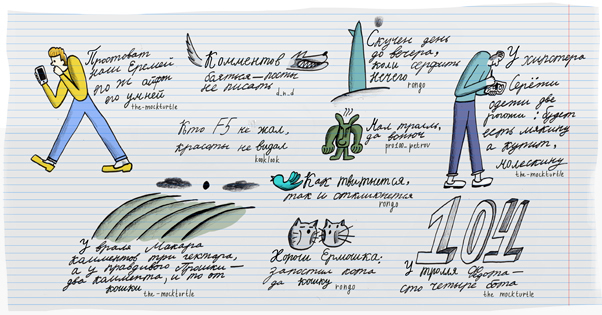 Простоват
наш Еремей
его ж айфон
его умней
the-mockturtle
Комментов
бояться — посты
не писать
d.n.d
Скучен день
до вечера,
коли серфить
нечего
rongo
У хипстера
Серёги
одежи две
рогожи: будет
есть мякину
а купит,
молескину
the-mockturtle
Кто F5 не жал,
красоты не видал
kooklook
Мал тролль,
да вонюч
prozm.petrov
Как твитнется,
так и откликнется
rongo
У враля Макара
комментов три гектара,
а у правдивого Прошки —
два коммента, и то от
кошки
the-mockturtle
Хорош Ермошка:
запостил кота
да кошку
rongo
104
у тролля Федота —
сто четыре бота
the mockturtle